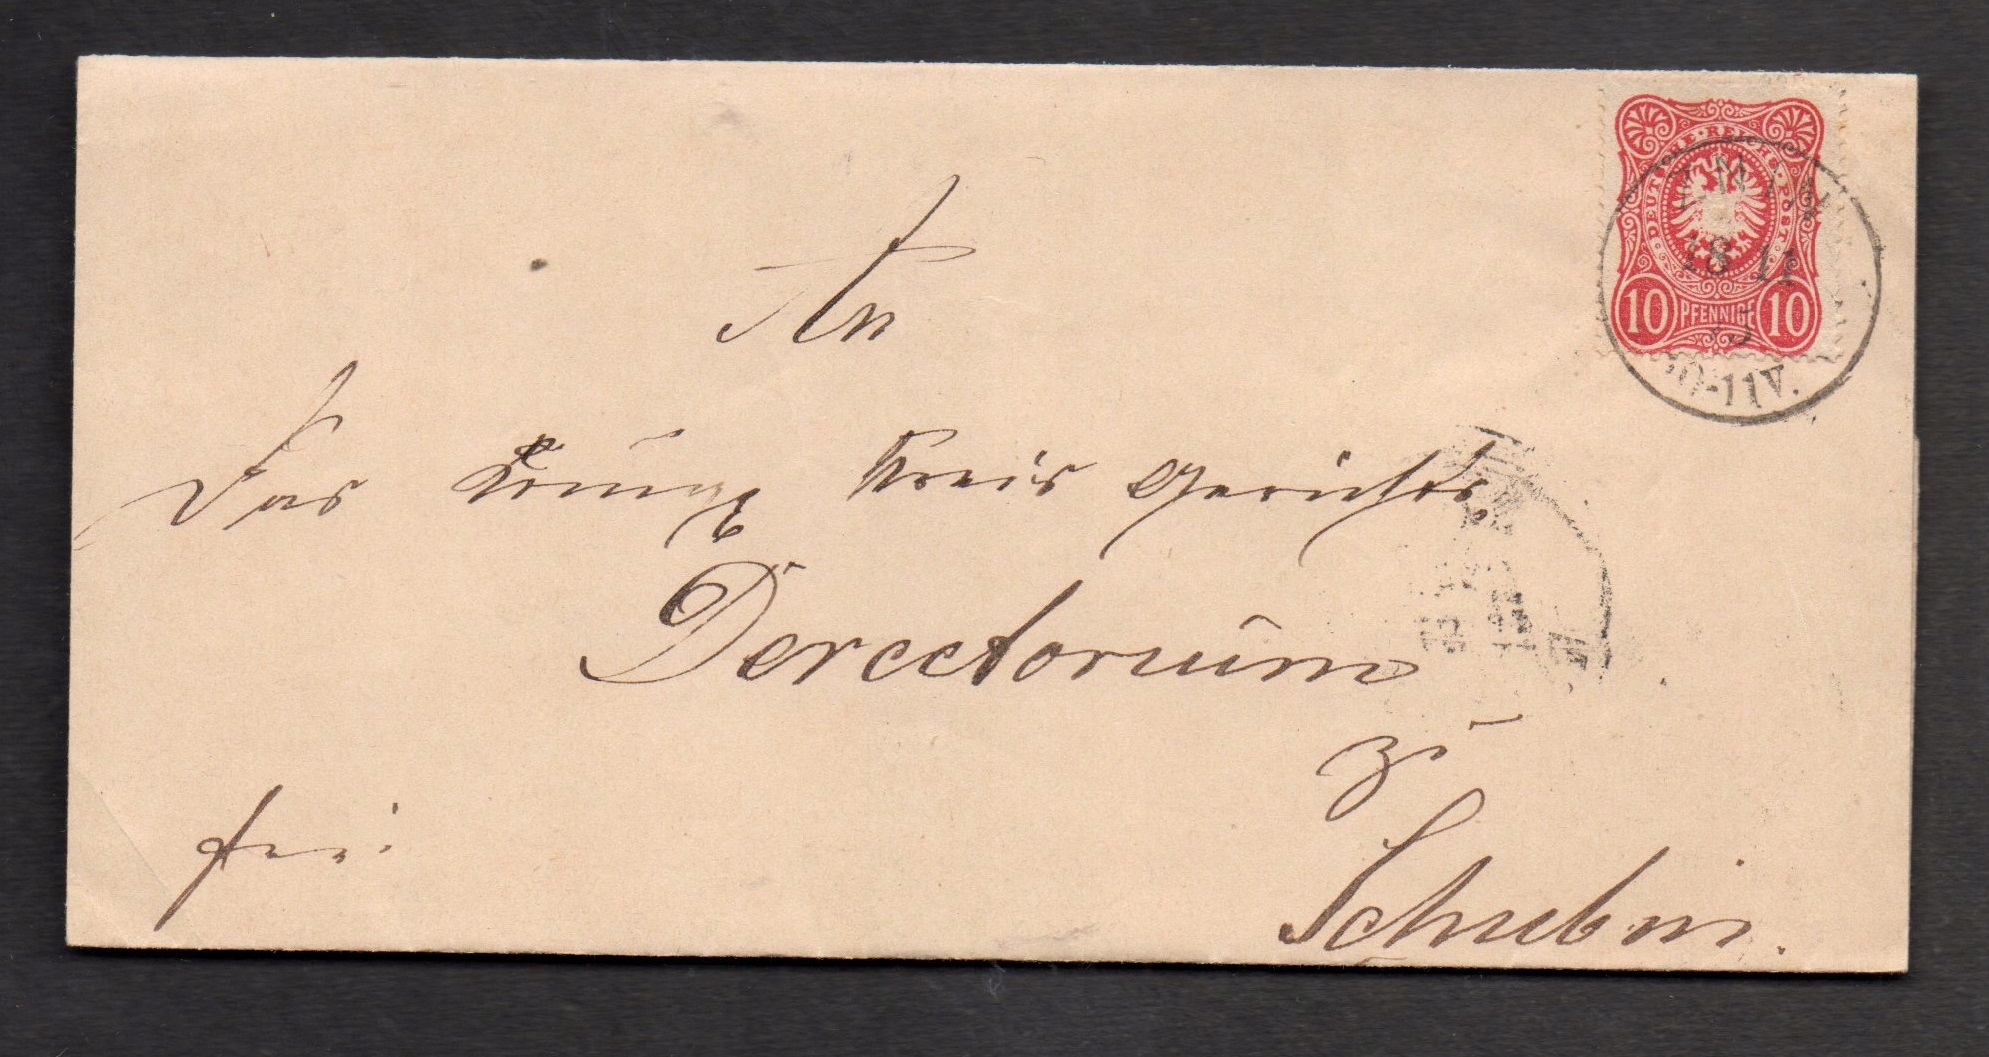 DEUTSCHE · REICHS · POST
18 11
10 PFENNIGE 10
-11V.
An
Das Königl Kreis Gerichts
Derectorium
zu
Schubin.
frei